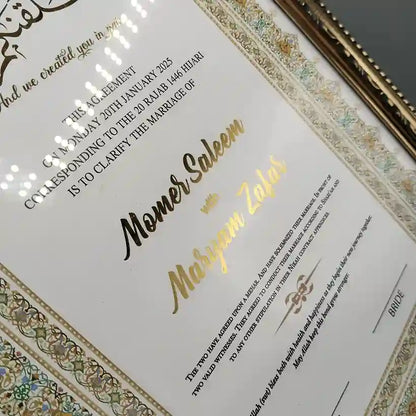 And we created you in pairs
THIS AGREEMENT
ON MONDAY 20TH JANUARY 2025
CORRESPONDING TO THE 20 RAJAB 1446 HIJARI
IS TO CLARIFY THE MARRIAGE OF
Momer Saleem
with
Maryam Zafar
THE TWO HAVE AGREED UPON A MEHAR, AND HAVE SOLEMNISED THEIR MARRIAGE, IN FRONT OF
TWO VALID WITNESSES. THEY AGREED TO CONDUCT THEIR MARRIAGE ACCORDING TO SHARI'AH AND
TO ANY OTHER STIPULATION IN THEIR NIKAH CONTRACT APPENDICES.
Allah (swt) bless both with health and happiness as they begin their new journey together.
May Allah keep this bond grow stronger.
BRIDE